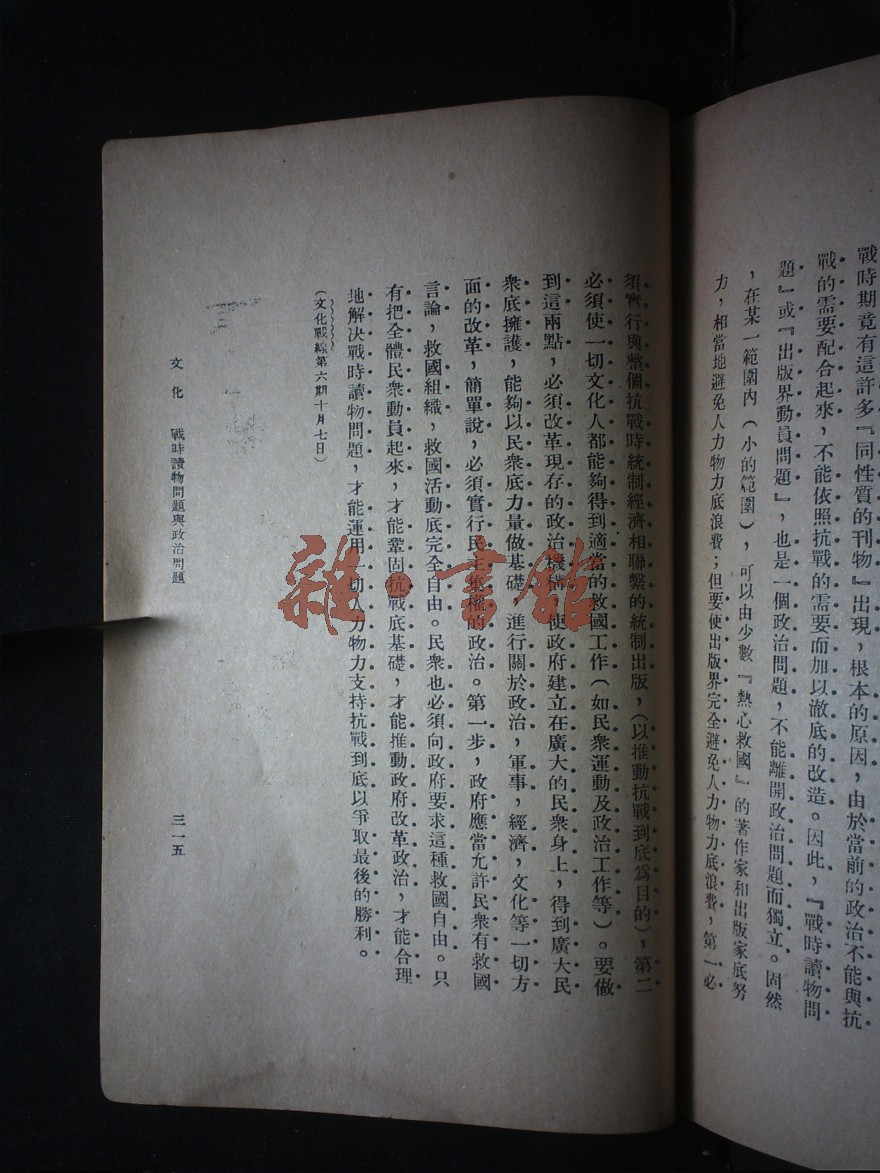 戰時期竟有這許多『同性質的刊物』出現，根本的原因，由於當前的政治不能與抗
戰的需要配合起來，不能依照抗戰的需要而加以澈底的改造。因此，『戰時讀物問
題』或『出版界動員問題』，也是一個政治問題，不能離開政治問題而獨立。固然
，在某一範圍內（小的範圍），可以由少數『熱心救國』的著作家和出版家底努
力，相當地避免人力物力底浪費；但要使出版界完全避免人力物力底浪費，第一必
須實行與整個抗戰時統制經濟相聯繫的統制出版，（以推動抗戰到底為目的），第二
必須使一切文化人都能夠得到適當的救國工作（如民衆運動及政治工作等）。要做
到這兩點，必須改革現存的政治機構，使政府建立在廣大的民衆身上，得到廣大民
衆底擁護，能夠以民衆底力量做基礎，進行關於政治，軍事，經濟，文化等一切方
面的改革，簡單說，必須實行民主集權的政治。第一步，政府應當允許民衆有救國
言論，救國組織，救國活動底完全自由。民衆也必須向政府要求這種救國自由。只
有把全體民衆動員起來，才能鞏固抗戰底基礎，才能推動政府改革政治，才能合理
地解決戰時讀物問題，才能運用一切人力物力支持抗戰到底以爭取最後的勝利。
（文化戰線第六期十月七日）
文化　戰時讀物問題與政治問題
三一五
雜·書館